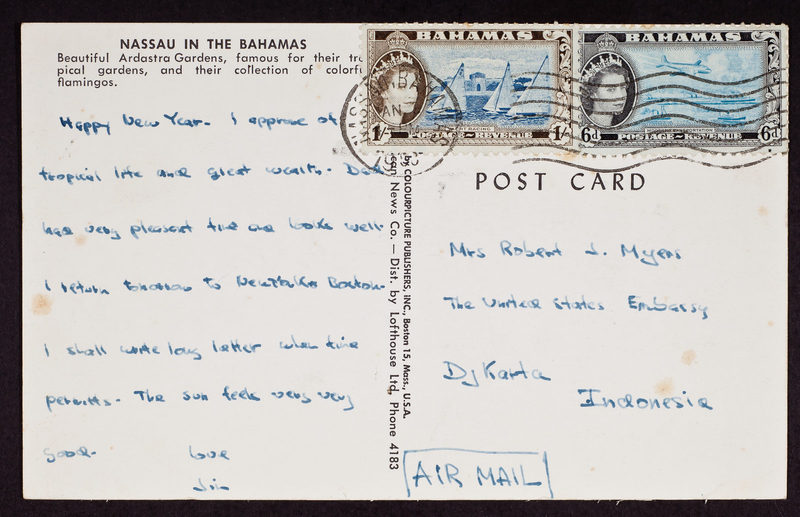 NASSAU IN THE BAHAMAS
Beautiful Ardastra Gardens, famous for their tro
pical gardens, and their collection of colorfu
flamingos.
Happy New Year - I approve of
tropical life and great wealth. Dad
has very pleasant time and looks well.
I return tomorrow to New York Boston.
I shall write long letter when time
permits. The sun feels very very
good.
love
Jim
by COLOURPICTURE PUBLISHERS, INC., Boston 15, Mass., U.S.A.
ean News Co. — Dist. by Lofthouse Ltd, Phone 4183
BAHAMAS
1/-
1/-
POSTAGE REVENUE
BAHAMAS
6d
6d
POSTAGE REVENUE
POST CARD
Mrs Robert J. Myers
The United States Embassy
DjKarta
Indonesia
AIR MAIL